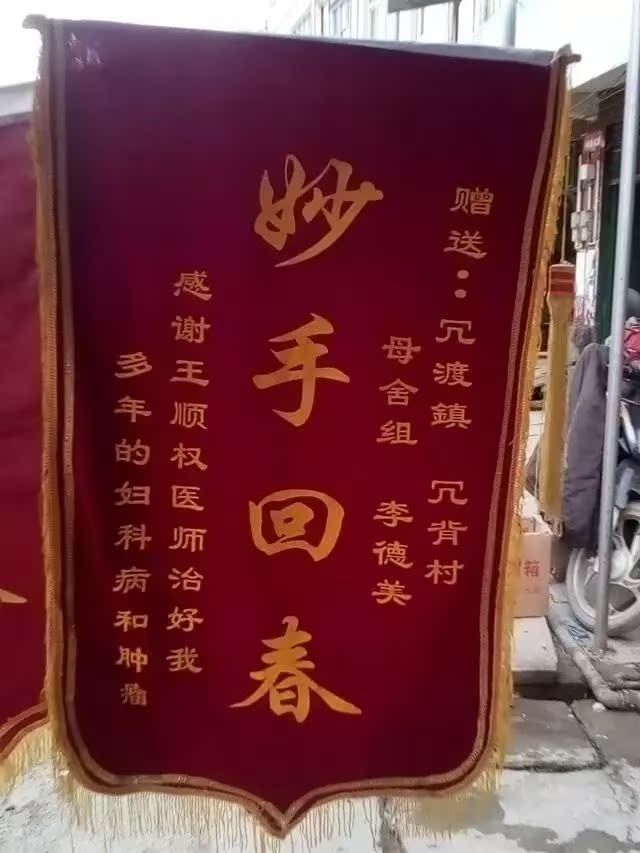 赠送：冗渡鎮 冗背村
母舍组 李德美
妙手回春
感谢王顺权医师治好我
多年的妇科病和肿瘤
箱